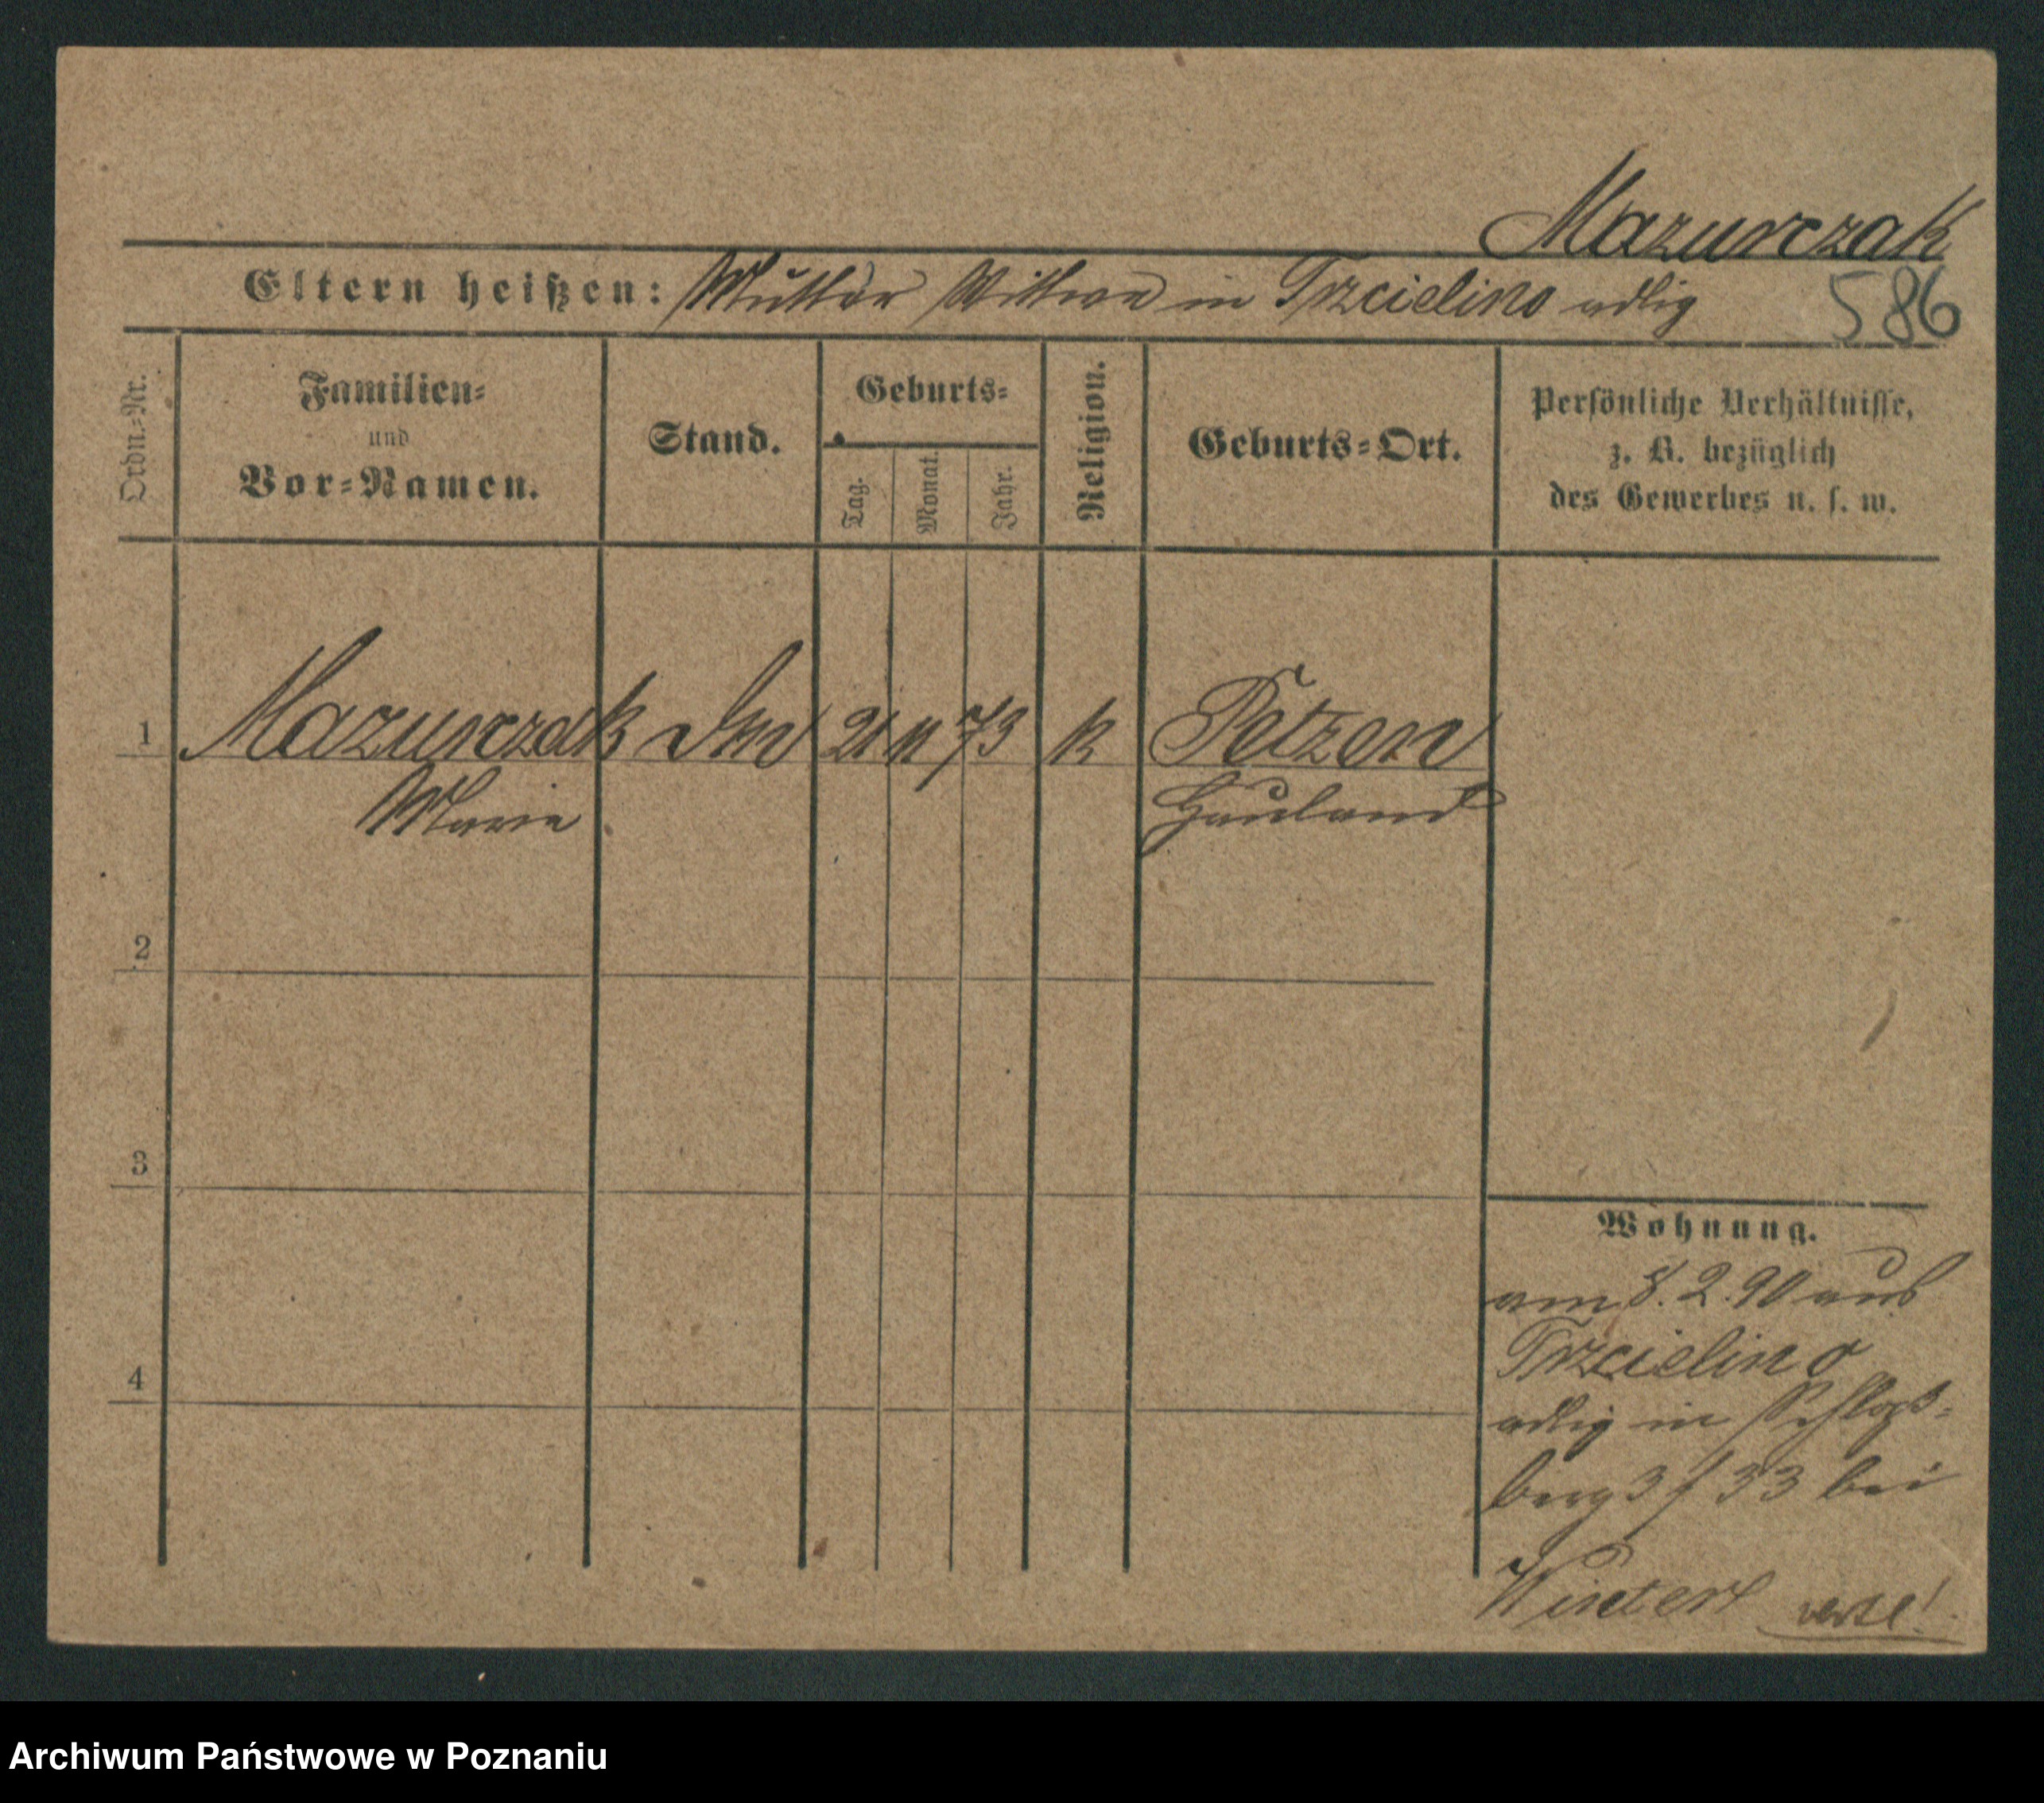 Mazurczak
Eltern heißen: Mutter Wittwe in Trzcielino adlig
586
Ordn.-Nr.
Familien-
und
Vor-Namen.
Stand.
Geburts-
Tag.
Monat.
Jahr.
Religion.
Geburts-Ort.
Persönliche Verhältnisse,
z. B. bezüglich
des Gewerbes u. s. w.
1 Mazurczak 21 11 73 k Petzen
Marie Hauland
2
3
4
Wohnung.
am 8. 2. 90 aus
Trzcielino
adlig in Schloß-
berg 3 / 33 bei
Winter verte!
Archiwum Państwowe w Poznaniu